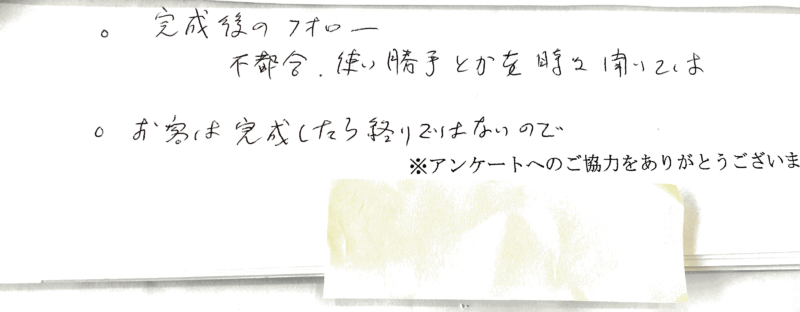 ○ 完成後のフォロー
不都合、使い勝手とかを時々聞いては
○ お客は完成したら終りではないので
※アンケートへのご協力をありがとうございま